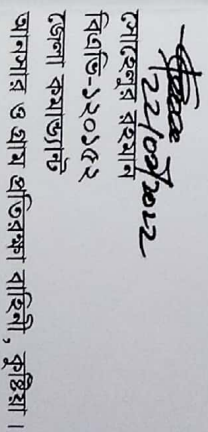 22/05/2022
সোহেলুর রহমান
বিএভি-১২০১৫২
জেলা কমান্ড্যান্ট
আনসার ও গ্রাম প্রতিরক্ষা বাহিনী, কুষ্টিয়া।